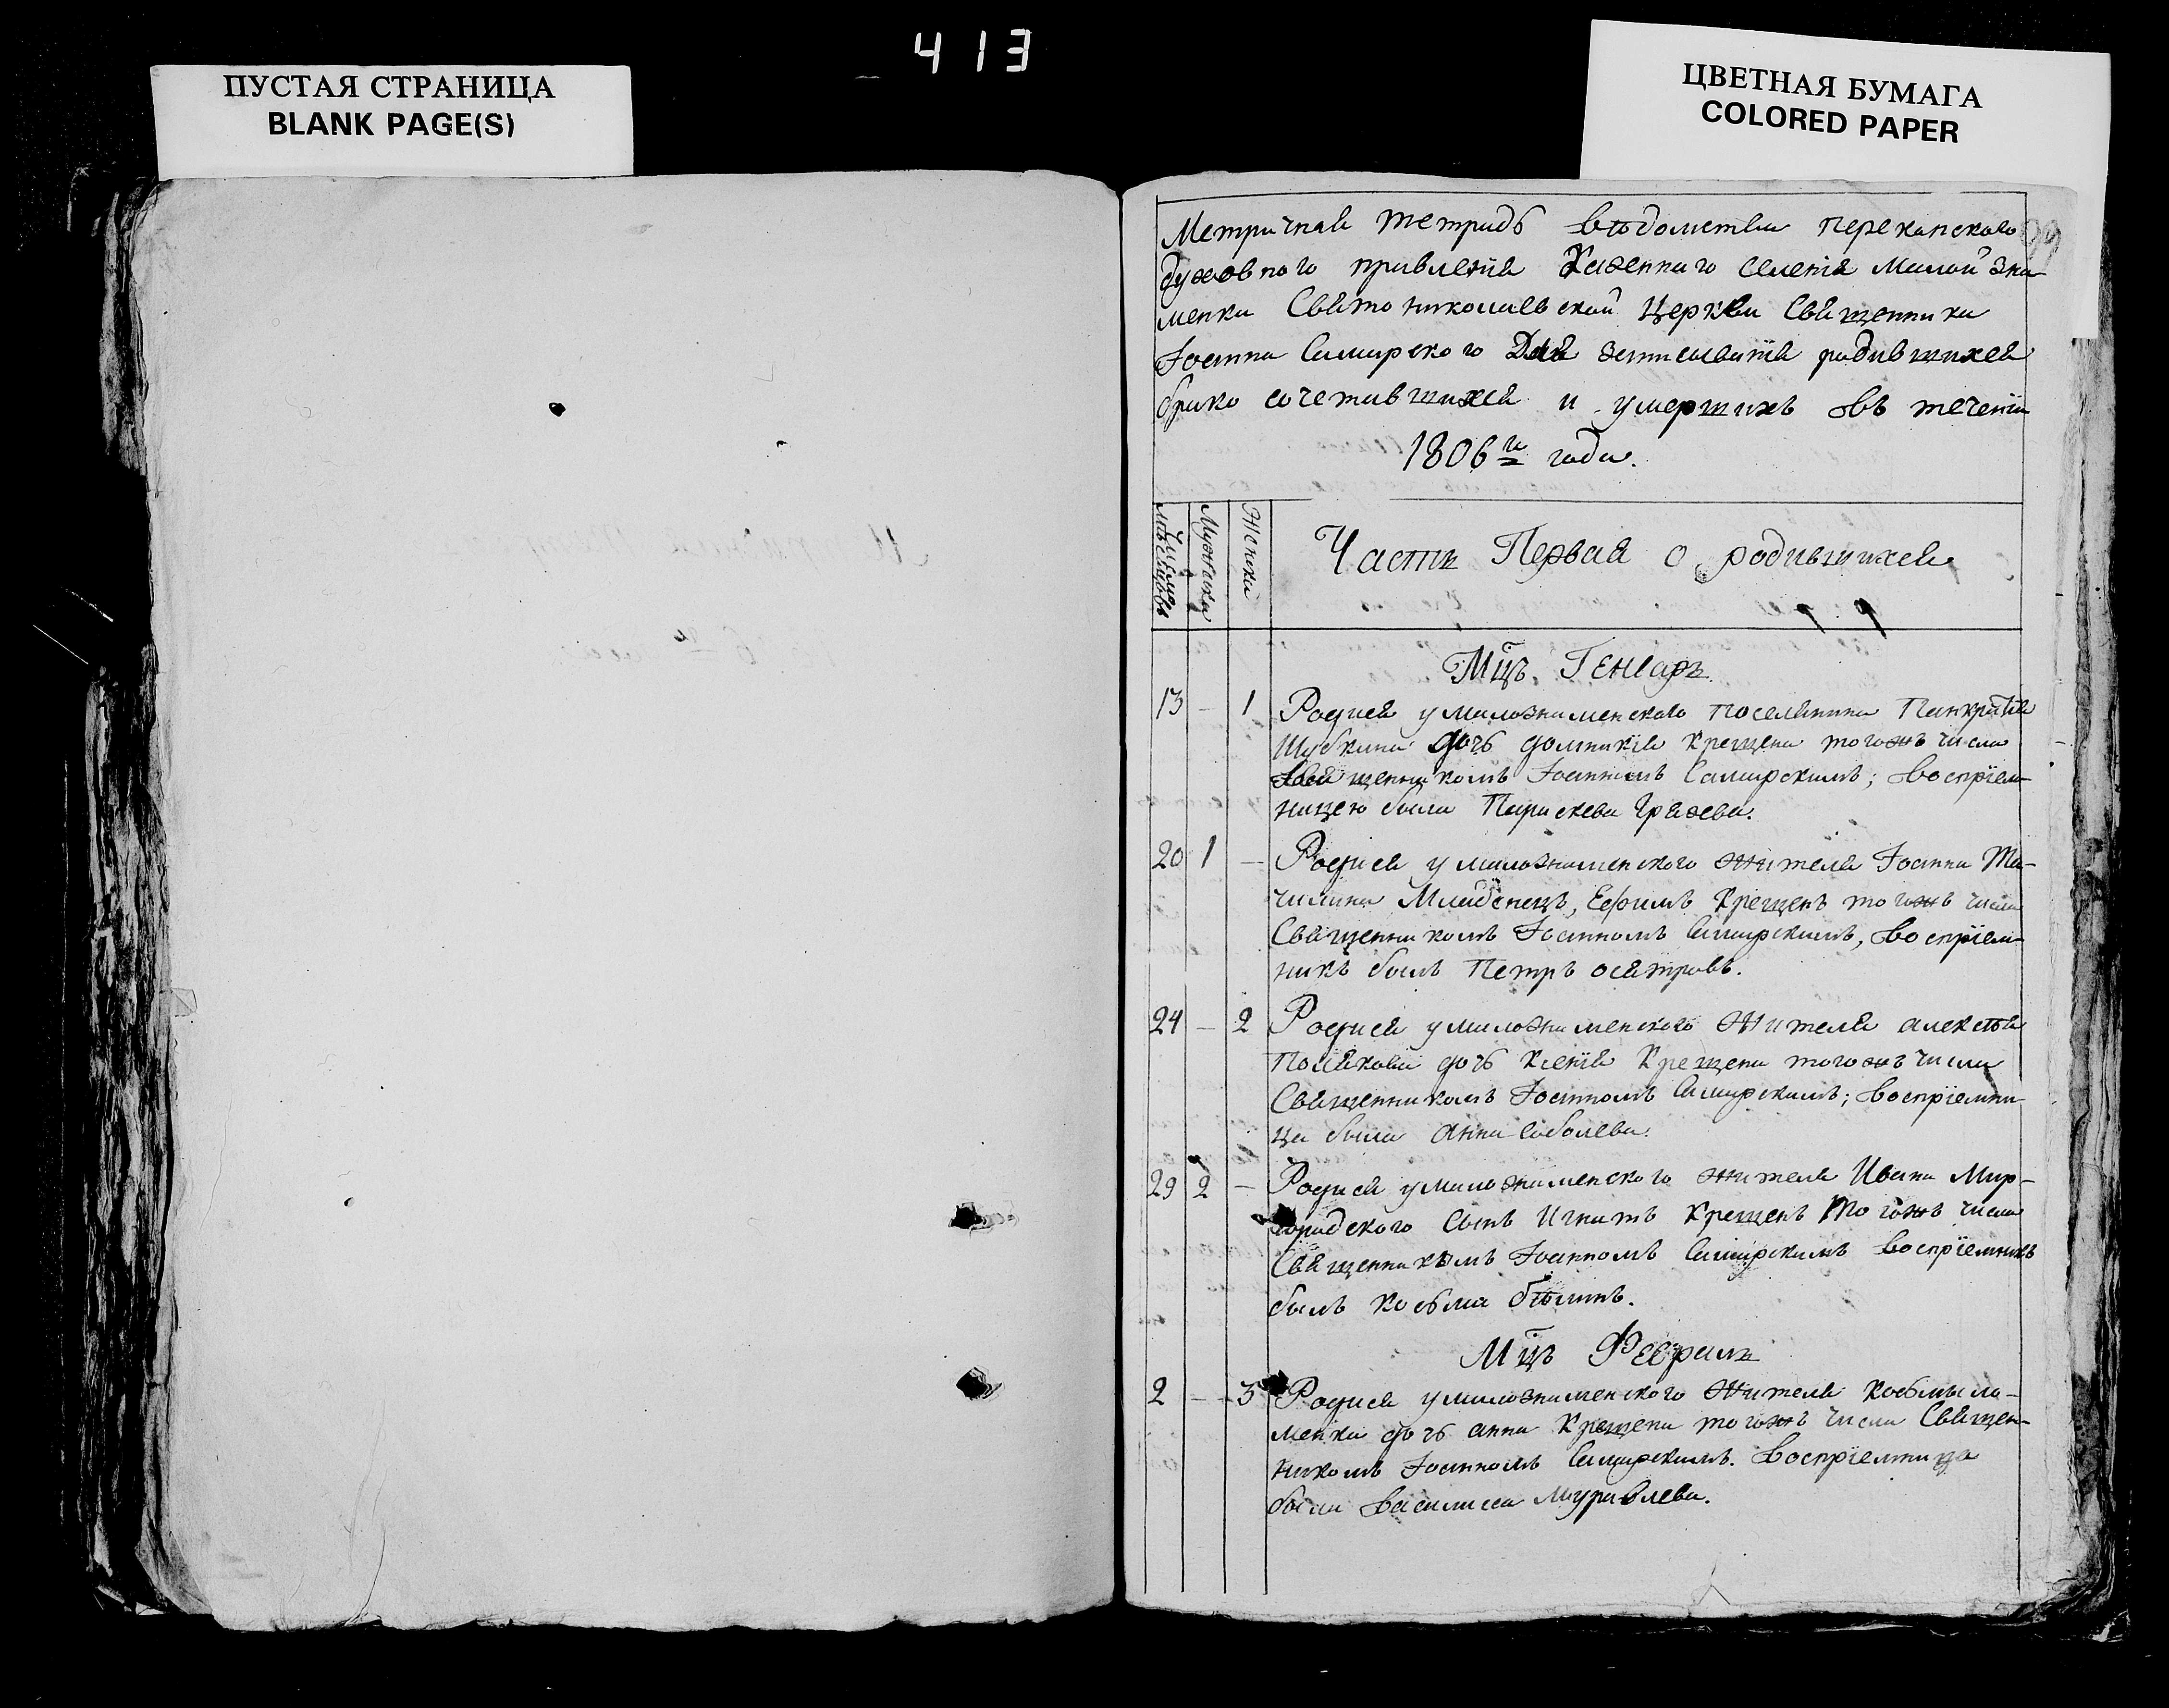 413
ПУСТАЯ СТРАНИЦА
BLANK PAGE(S)
ЦВЕТНАЯ БУМАГА
COLORED PAPER
Метричная тетрадь вѣдомства перекопскаго
духовнаго правленія Казеннаго селенія Малой Зна-
менки Свято николаевской Церкви Священника
Іоанна Самарского Для записыванія родившихся
брако сочетавшихся и умершихъ въ теченіи
1806го года.
Число мѣсяцовъ
Мужески
Женски
Часть Первая о родившихся
Мцъ Генваръ
13 – 1 Родися у малознаменскаго поселянина Панкратія
Шубкина дочь домникія Крещена тогожъ числа
Священникомъ Іоанномъ Самарскимъ; воспріем-
ницею была Параскева Грязева.
20 1 – Родися у малознаменского жителя Іоанна Та-
чилина Младенецъ, Ефимъ Крещенъ тогожъ числа
Священникомъ Іоанномъ Самарскимъ, воспріем-
никъ былъ Петръ осятровъ.
24 – 2 Родися у малознаменского жителя алексѣя
Полякова дочь Ксенія Крещена тогожъ числа
Священникомъ Іоанномъ Самарскимъ; воспріемни-
ца была Анна Соболева.
29 2 – Родися у малознаменского жителя Ивана Мир-
городского Сынъ Игнатъ Крещенъ Тогожъ числа
Священникомъ Іоанномъ Самарскимъ воспріемникъ
былъ Косьма
Мцъ Февраль
2 – 3 Родися у малознаменского жителя Косьмы ло-
менка дочь анна Крещена тогожъ числа Священ-
никомъ Іоанномъ Самарскимъ. Воспріемница
была Василиса Муравлева.